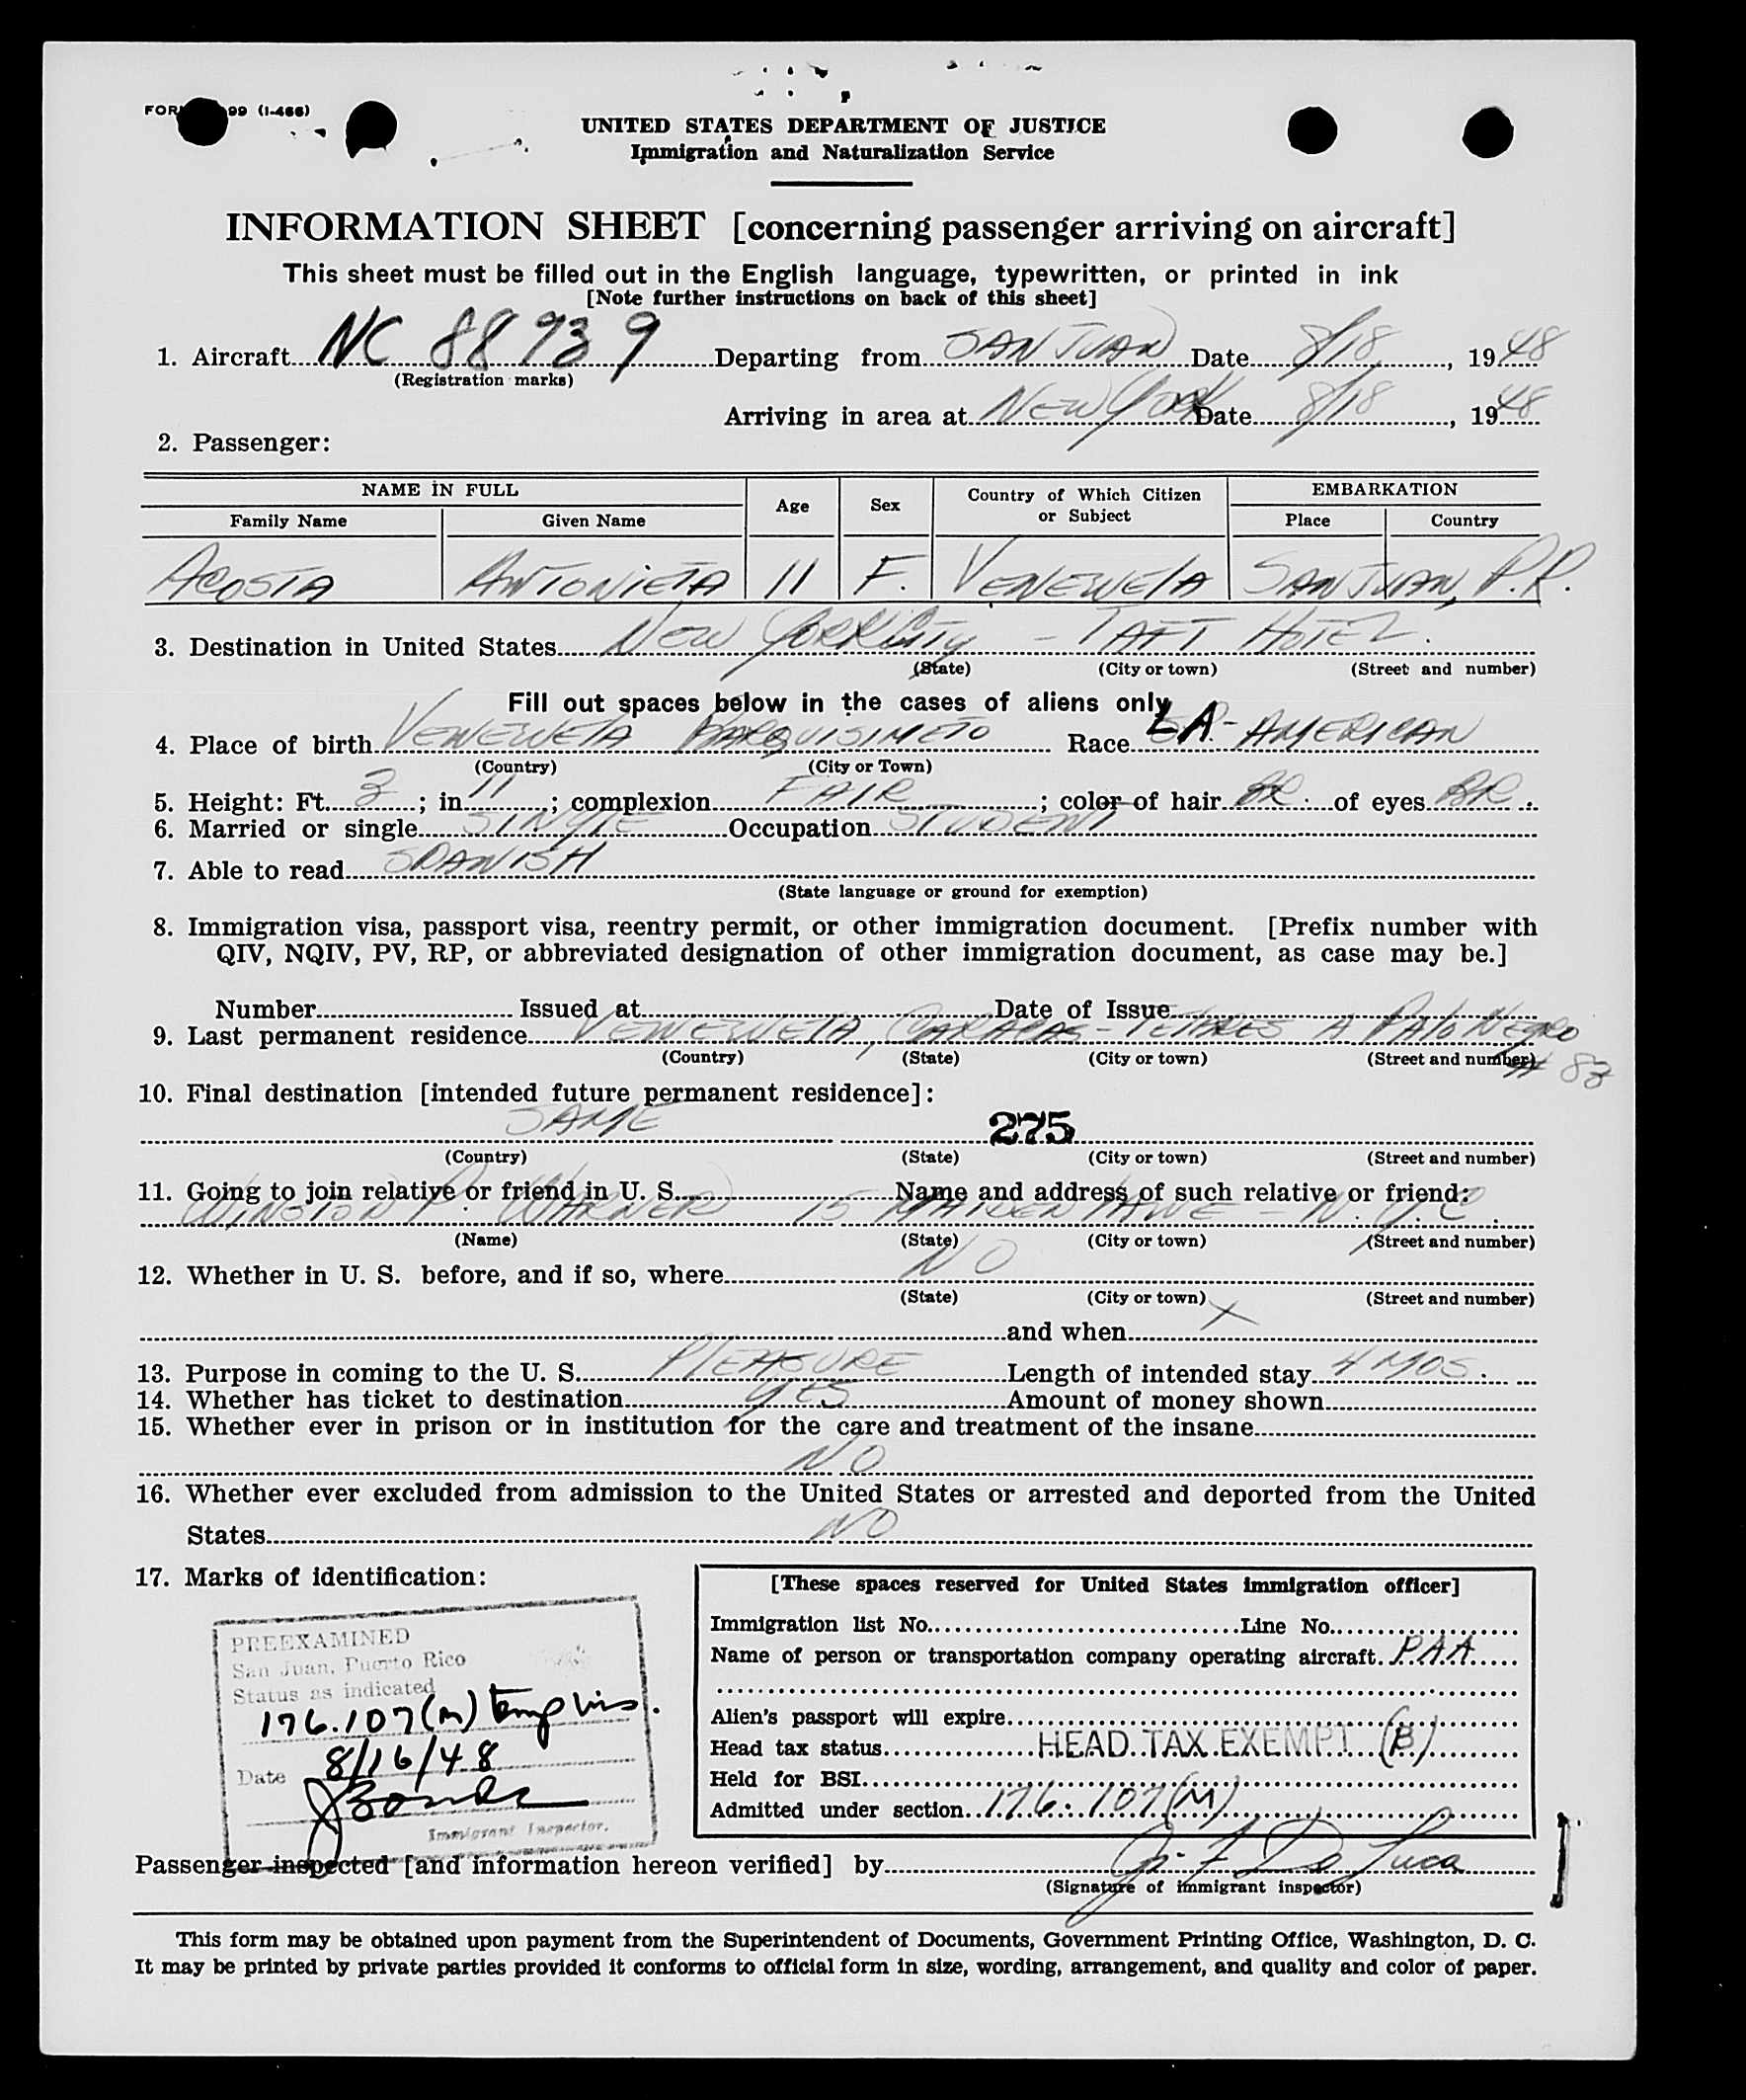 FOR 99 (I-466)
UNITED STATES DEPARTMENT OF JUSTICE
Immigration and Naturalization Service
INFORMATION SHEET [concerning passenger arriving on aircraft]
This sheet must be filled out in the English language, typewritten, or printed in ink
[Note further instructions on back of this sheet]
1. Aircraft NC 88939 Departing from SAN JUAN Date 8/18, 1948
(Registration marks)
Arriving in area at NEW YORK Date 8/18, 1948
2. Passenger:
NAME IN FULL Age Sex Country of Which Citizen or Subject EMBARKATION
Family Name Given Name Place Country
ACOSTA ANTONIETA 11 F. VENEZUELA SAN JUAN, P.R.
3. Destination in United States NEW YORK City - TAFT HOTEL.
(State) (City or town) (Street and number)
Fill out spaces below in the cases of aliens only
4. Place of birth VENEZUELA BARQUISIMETO Race LA-AMERICAN
(Country) (City or Town)
5. Height: Ft. 3; in. 11; complexion FAIR; color of hair BR. of eyes BR.
6. Married or single SINGLE Occupation STUDENT
7. Able to read SPANISH
(State language or ground for exemption)
8. Immigration visa, passport visa, reentry permit, or other immigration document. [Prefix number with
QIV, NQIV, PV, RP, or abbreviated designation of other immigration document, as case may be.]
Number Issued at Date of Issue
9. Last permanent residence VENEZUELA, CARACAS - A PALO NEGRO
(Country) (State) (City or town) (Street and number) # 83
10. Final destination [intended future permanent residence]:
SAME 275
(Country) (State) (City or town) (Street and number)
11. Going to join relative or friend in U. S. Name and address of such relative or friend:
WINSTON P. WARNER 15 MAIDEN LANE - N.Y.C.
(Name) (State) (City or town) (Street and number)
12. Whether in U. S. before, and if so, where NO
(State) (City or town) (Street and number)
and when X
13. Purpose in coming to the U. S. PLEASURE Length of intended stay 4 MOS.
14. Whether has ticket to destination YES Amount of money shown
15. Whether ever in prison or in institution for the care and treatment of the insane
NO
16. Whether ever excluded from admission to the United States or arrested and deported from the United
States NO
17. Marks of identification:
PREEXAMINED
San Juan, Puerto Rico
Status as indicated
176.107(m) temp vis.
Date 8/16/48
Immigrant Inspector.
[These spaces reserved for United States immigration officer]
Immigration list No. Line No.
Name of person or transportation company operating aircraft. P.A.A.
Alien's passport will expire
Head tax status HEAD TAX EXEMPT (B)
Held for BSI
Admitted under section 176.107(M)
Passenger inspected [and information hereon verified] by De Luca
(Signature of immigrant inspector)
This form may be obtained upon payment from the Superintendent of Documents, Government Printing Office, Washington, D. C.
It may be printed by private parties provided it conforms to official form in size, wording, arrangement, and quality and color of paper.